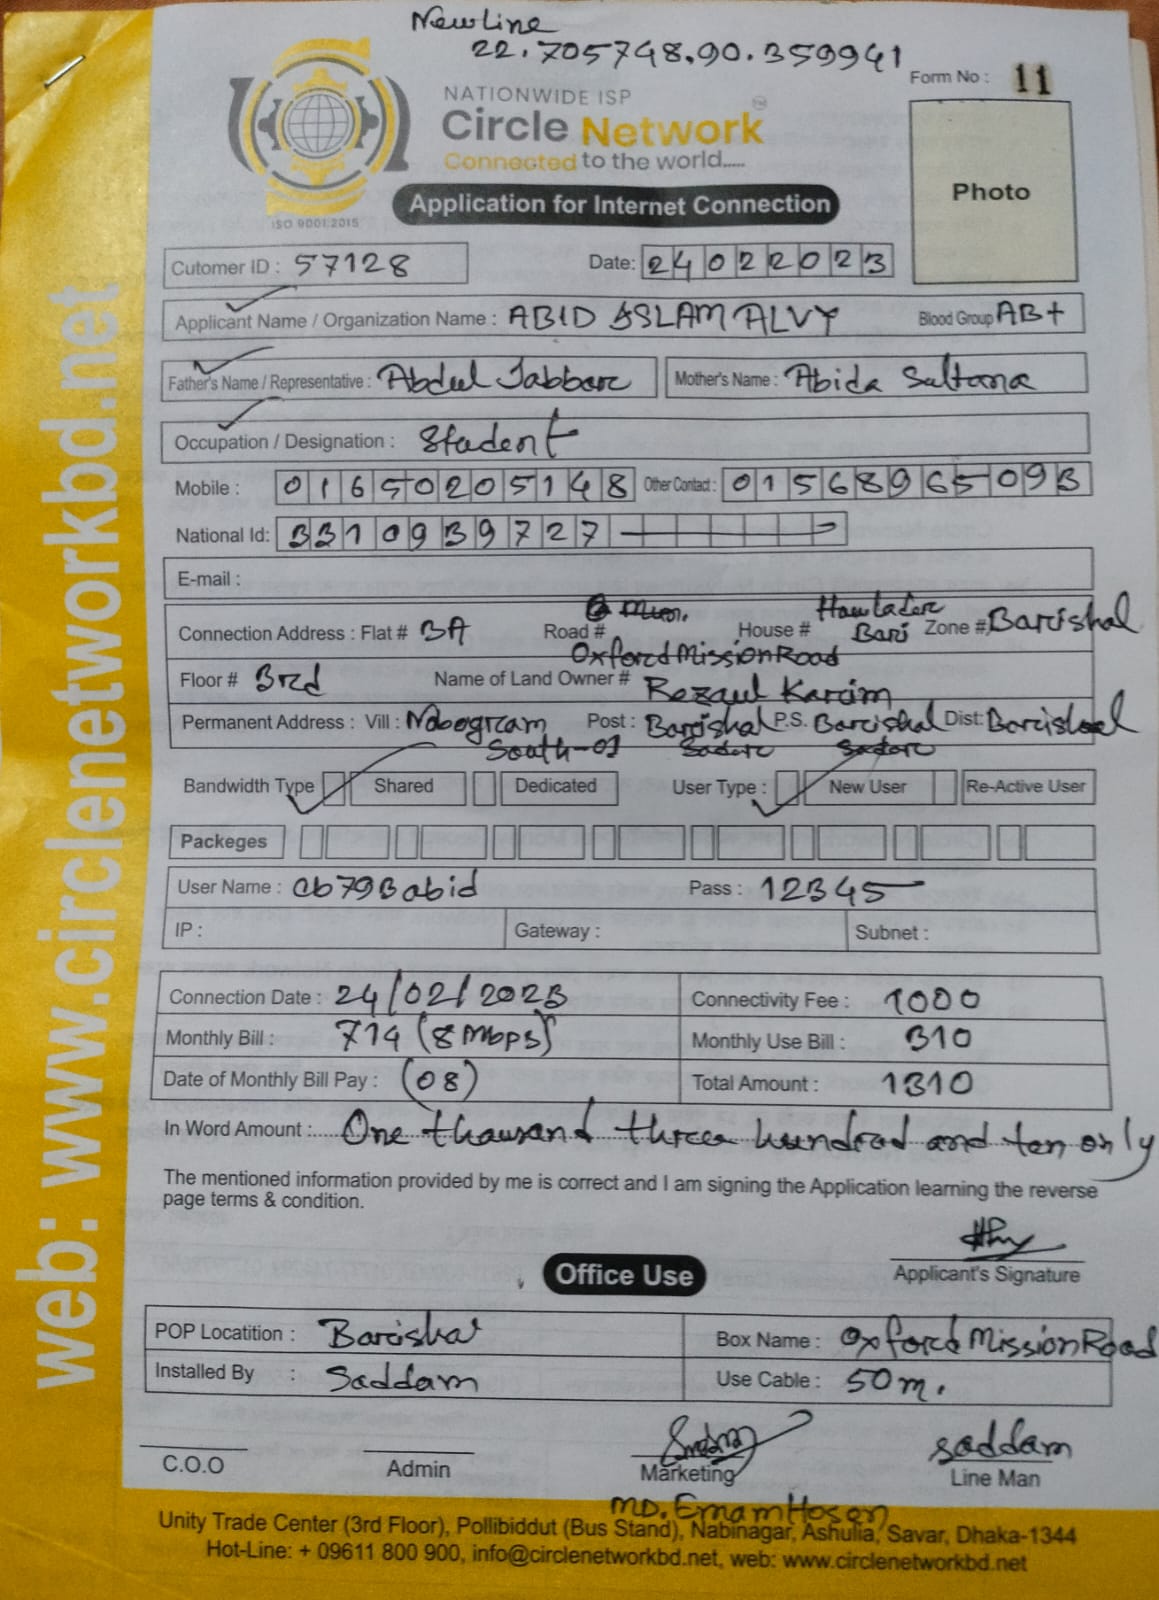 New Line
22.705748.90.359941
Form No : 11
NATIONWIDE ISP
Circle Network
Connected to the world.....
ISO 9001:2015
Application for Internet Connection
Photo
Cutomer ID : 57128 Date: 24022023
Applicant Name / Organization Name : ABID ASLAM ALVY Blood Group AB+
Father's Name / Representative : Abdul Jabbar Mother's Name : Abida Sultana
Occupation / Designation : Student
Mobile : 01650205148 Other Contact : 01568965093
National Id: 3310939727
E-mail :
Connection Address : Flat # 3A Road # Oxford Mission Road House # Howlader Bari Zone # Barishal
Floor # 3rd Name of Land Owner # Rezaul Karim
Permanent Address : Vill : Nobogram South-01 Post : Barishal Sadar P.S. Barishal Sadar Dist: Barishal
Bandwidth Type Shared Dedicated User Type : New User Re-Active User
Packeges
User Name : cb793abid Pass : 12345
IP : Gateway : Subnet :
Connection Date : 24/02/2023 Connectivity Fee : 1000
Monthly Bill : 714 (8 Mbps) Monthly Use Bill : 310
Date of Monthly Bill Pay : (08) Total Amount : 1310
In Word Amount : One thousand three hundred and ten only
The mentioned information provided by me is correct and I am signing the Application learning the reverse
page terms & condition.
Applicant's Signature
Office Use
POP Locatition : Barishal Box Name : Oxford Mission Road
Installed By : Saddam Use Cable : 50m.
saddam
C.O.O Admin Marketing Line Man
MD. Emam Hosen
Unity Trade Center (3rd Floor), Pollibiddut (Bus Stand), Nabinagar, Ashulia, Savar, Dhaka-1344
Hot-Line: + 09611 800 900, info@circlenetworkbd.net, web: www.circlenetworkbd.net
web: www.circlenetworkbd.net